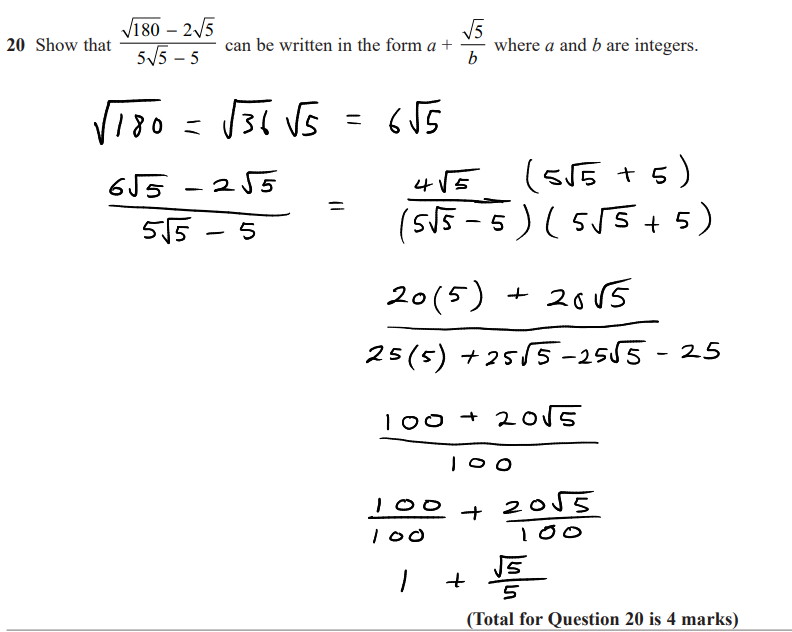 20 Show that (√180 − 2√5)/(5√5 − 5) can be written in the form a + √5/b where a and b are integers.
√180 = √36 √5 = 6√5
(6√5 − 2√5)/(5√5 − 5) = 4√5 (5√5 + 5)/(5√5 − 5)(5√5 + 5)
20(5) + 20√5
25(5) + 25√5 − 25√5 − 25
100 + 20√5
100
100/100 + 20√5/100
1 + √5/5
(Total for Question 20 is 4 marks)